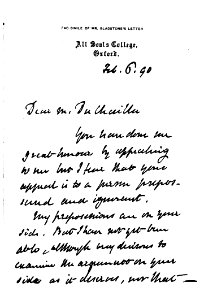 FAC-SIMILE OF MR. GLADSTONE'S LETTER
All Souls College,
Oxford.
Feb. 6. 90
Dear M. Du Chaillu
You have done me
great honour by appealing
to me but I fear that your
appeal is to a person prepos-
sessed and ignorant.
My prepossessions are on your
side. But I have not yet been
able, although very desirous to
examine the argument on your
side as it deserves, nor that